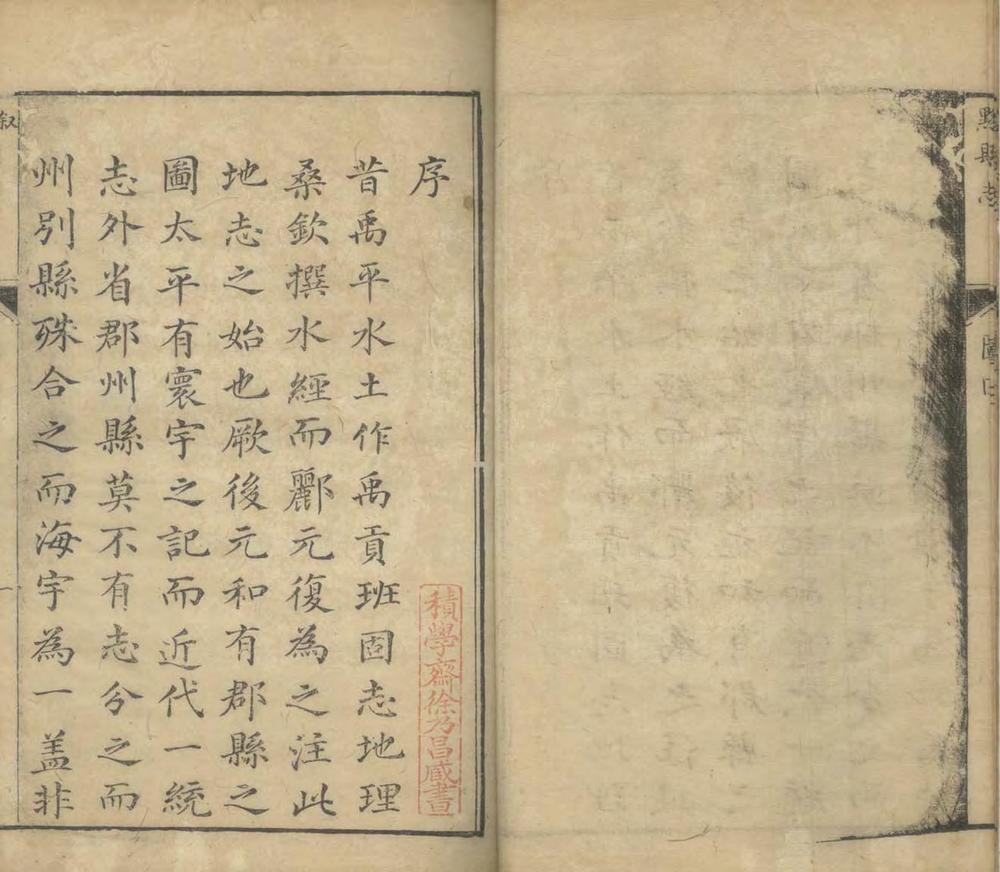 黟縣志
圖
序
昔禹平水土作禹貢班固志地理
桑欽撰水經而酈元復為之注此
地志之始也厥後元和有郡縣之
圖太平有寰宇之記而近代一統
志外省郡州縣莫不有志分之而
州別縣殊合之而海宇為一蓋非
積學齋徐乃昌藏書
叙
一